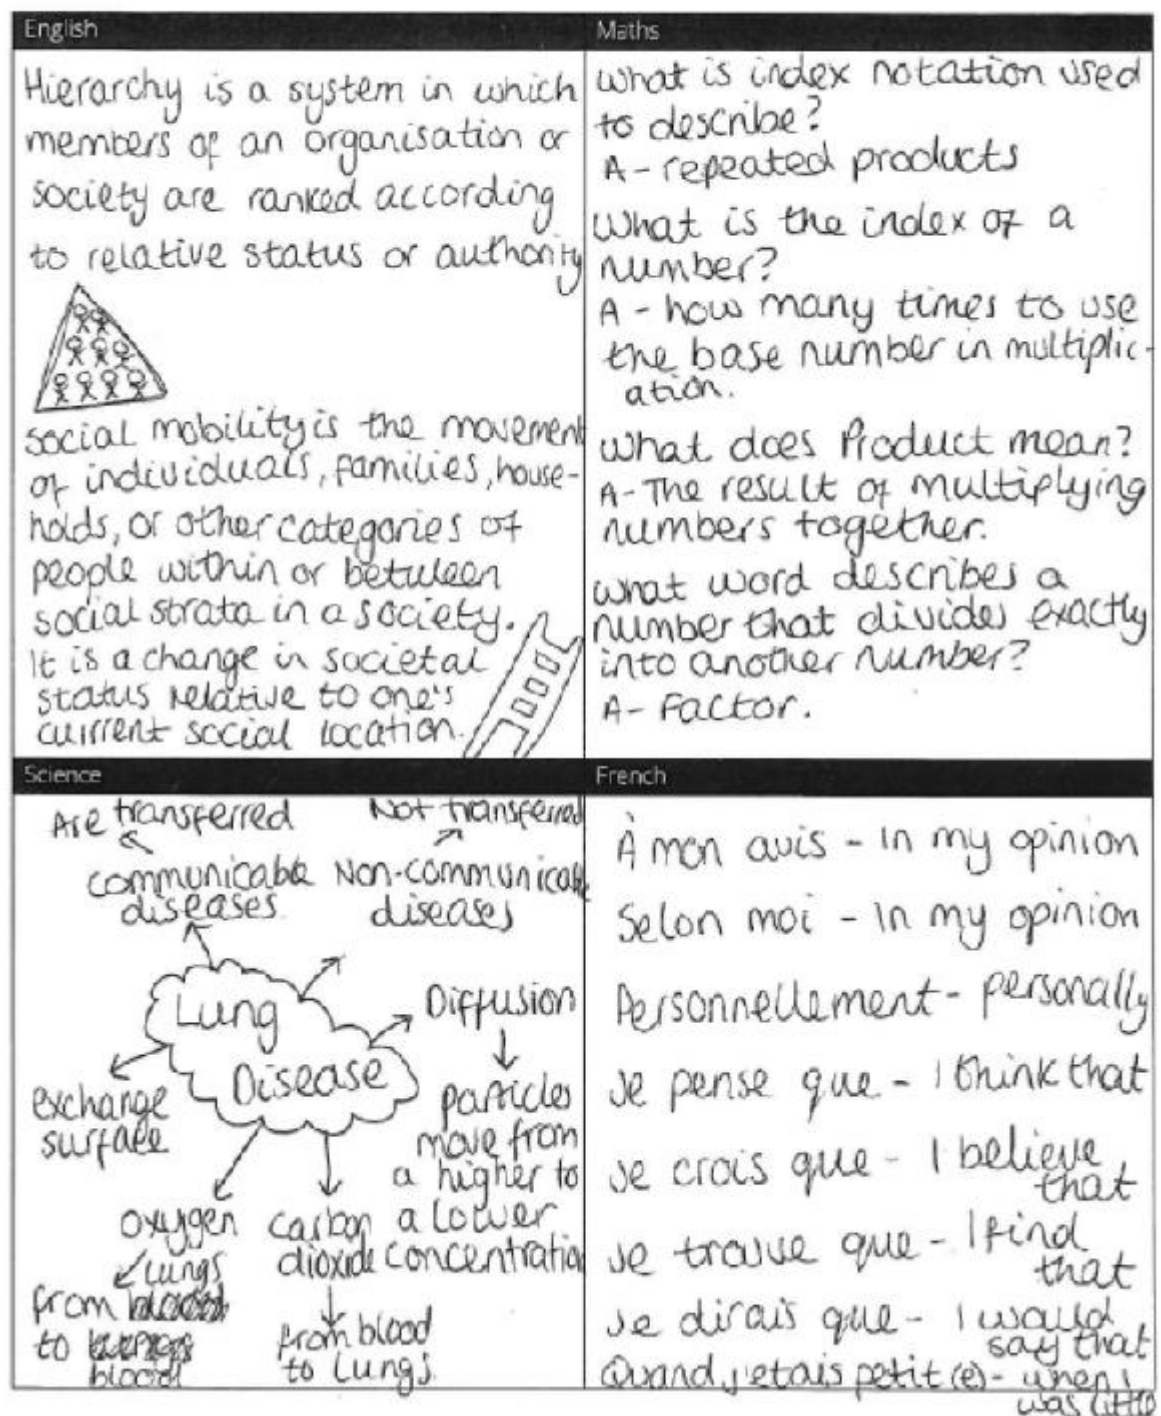 English
Hierarchy is a system in which
members of an organisation or
society are ranked according
to relative status or authority
social mobility is the movement
of individuals, families, house-
holds, or other categories of
people within or between
social strata in a society.
It is a change in societal
status relative to one's
current social location.
Maths
what is index notation used
to describe?
A- repeated products
What is the index of a
number?
A - how many times to use
the base number in multiplic-
ation.
what does Product mean?
A- The result of multiplying
numbers together.
what word describes a
number that divides exactly
into another number?
A- Factor.
Science
Are transferred
communicable
diseases
Not transferred
Non-communicable
diseases
Lung
Disease
Diffusion
particles
move from
a higher to
a lower
concentration
exchange
surface
oxygen
lungs
from
to
blood
carbon
dioxide
from blood
to Lungs.
French
À mon avis - In my opinion
Selon moi - In my opinion
Personnellement - personally
Je pense que - I think that
Je crois que - I believe
that
Je trouve que - I find
that
Je dirais que - I would
say that
Quand j'etais petit (e) - when I
was little